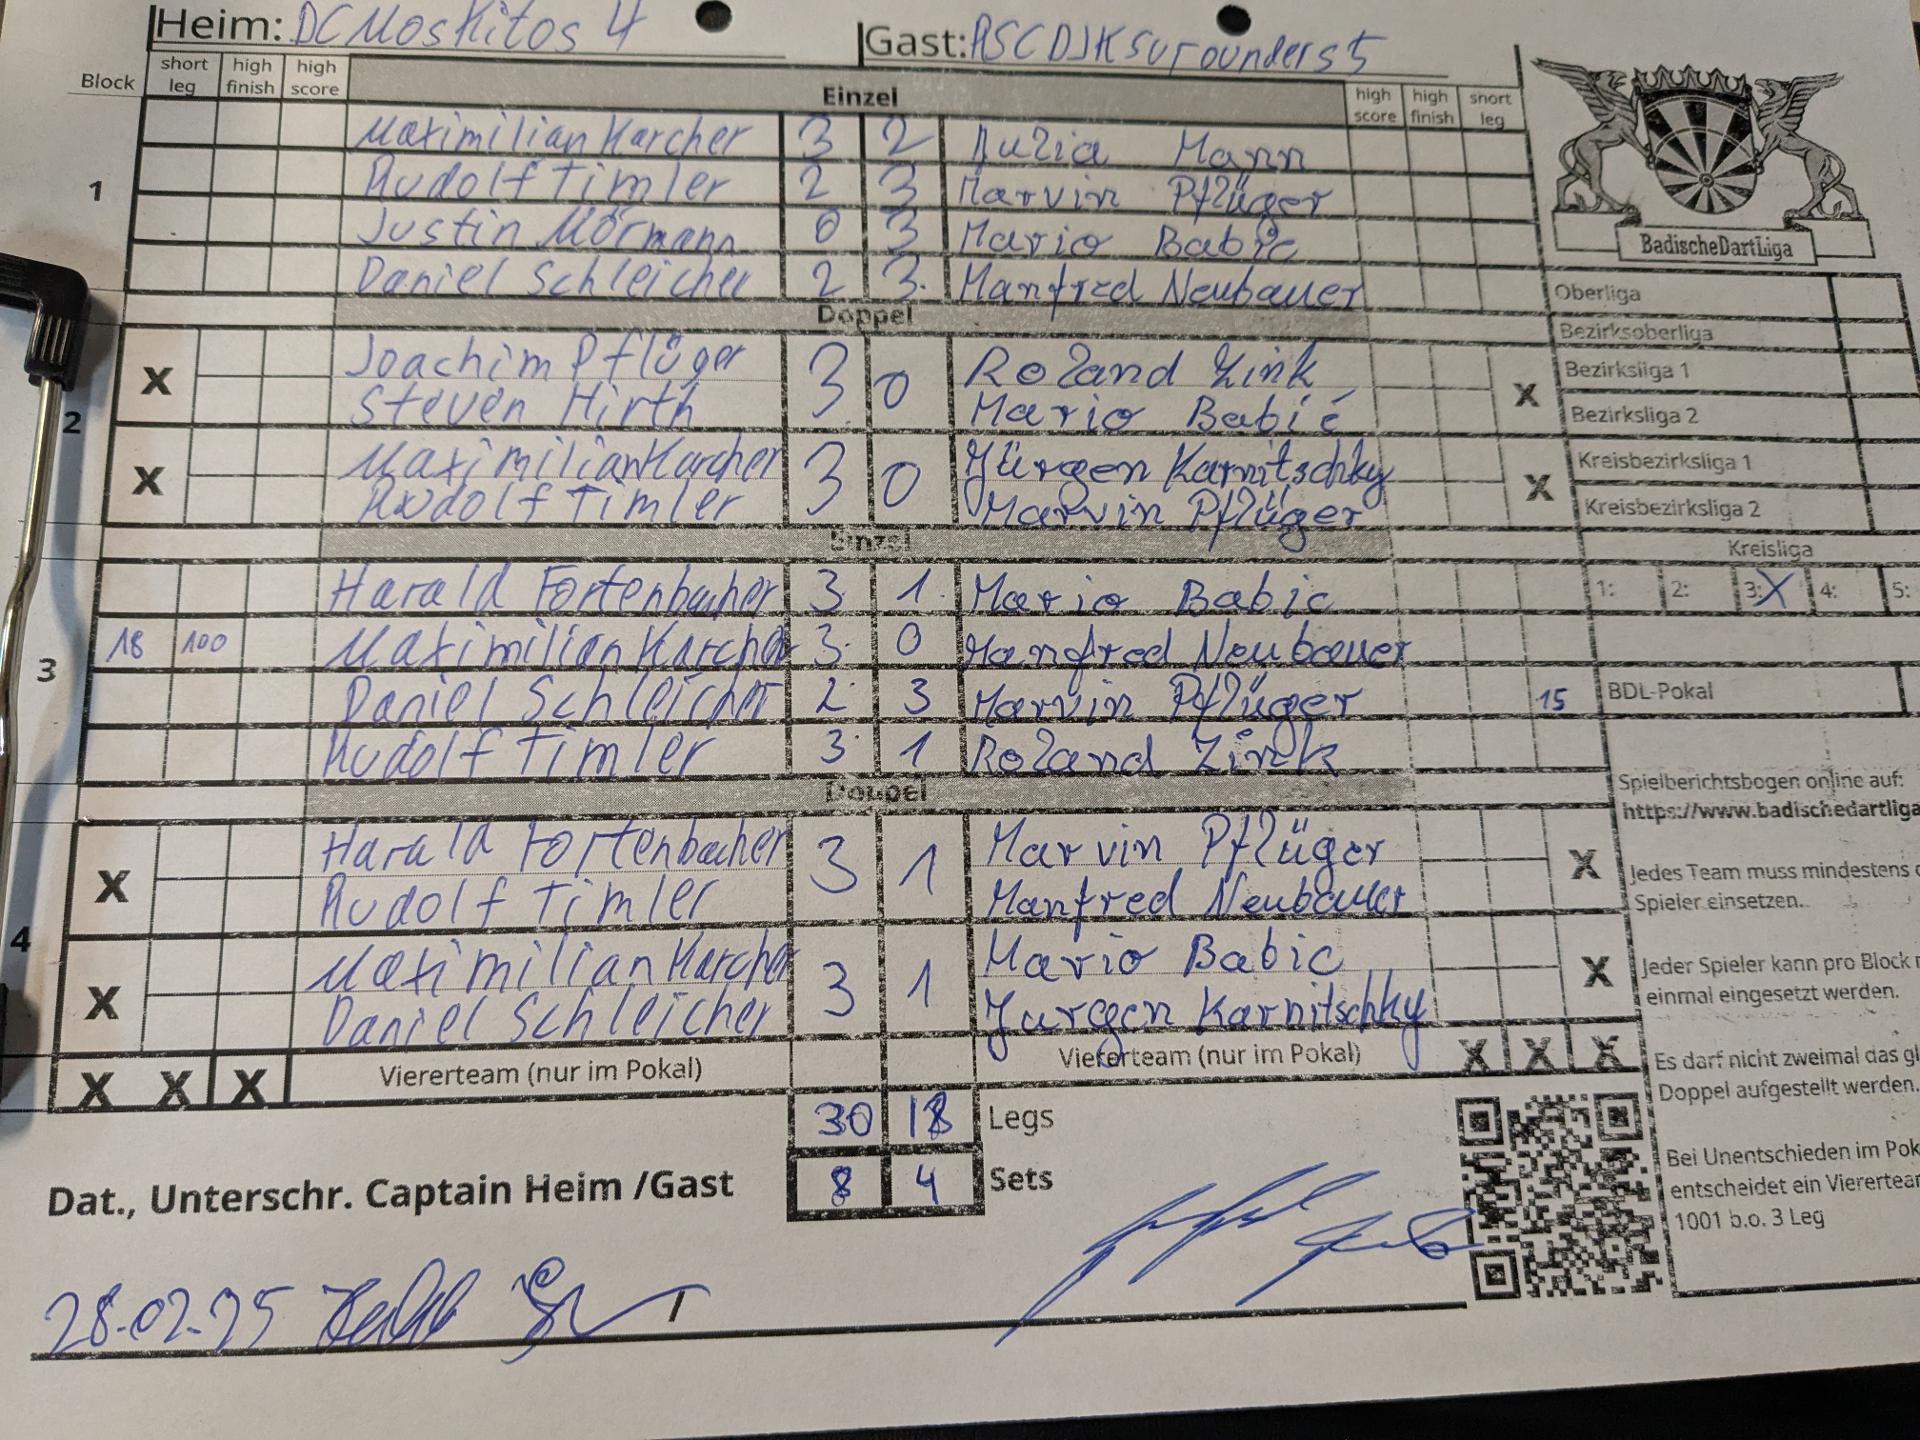 Heim: DC Moskitos 4 Gast: RSCDJKSurounders 5
Block short leg high finish high score Einzel high score high finish short leg
1
Maximilian Karcher 3 2 Julia Mann
Rudolf Timler 2 3 Marvin Pflüger
Justin Mörmann 0 3 Mario Babic
Daniel Schleicher 2 3 Manfred Neubauer
BadischeDartLiga
Oberliga
Bezirksoberliga
Bezirksliga 1
Bezirksliga 2
Kreisbezirksliga 1
Kreisbezirksliga 2
Kreisliga
1: 2: 3: X 4: 5:
BDL-Pokal
Doppel
2
X Joachim Pflüger 3 0 Roland Zink X
Steven Hirth Mario Babić
X Maximilian Karcher 3 0 Jürgen Karnitschky X
Rudolf Timler Marvin Pflüger
Einzel
3
Harald Fortenbacher 3 1 Mario Babic
18 100 Maximilian Karcher 3 0 Manfred Neubauer
Daniel Schleicher 2 3 Marvin Pflüger 15
Rudolf Timler 3 1 Roland Zink
Doppel
4
X Harald Fortenbacher 3 1 Marvin Pflüger X
Rudolf Timler Manfred Neubauer
X Maximilian Karcher 3 1 Mario Babic X
Daniel Schleicher Jurgen Karnitschky
X X X Viererteam (nur im Pokal) Viererteam (nur im Pokal) X X X
30 18 Legs
8 4 Sets
Dat., Unterschr. Captain Heim /Gast
28.02.25
Spielberichtsbogen online auf:
https://www.badischedartliga
Jedes Team muss mindestens
Spieler einsetzen.
Jeder Spieler kann pro Block
einmal eingesetzt werden.
Es darf nicht zweimal das gl
Doppel aufgestellt werden.
Bei Unentschieden im Pok
entscheidet ein Viererteam
1001 b.o. 3 Leg